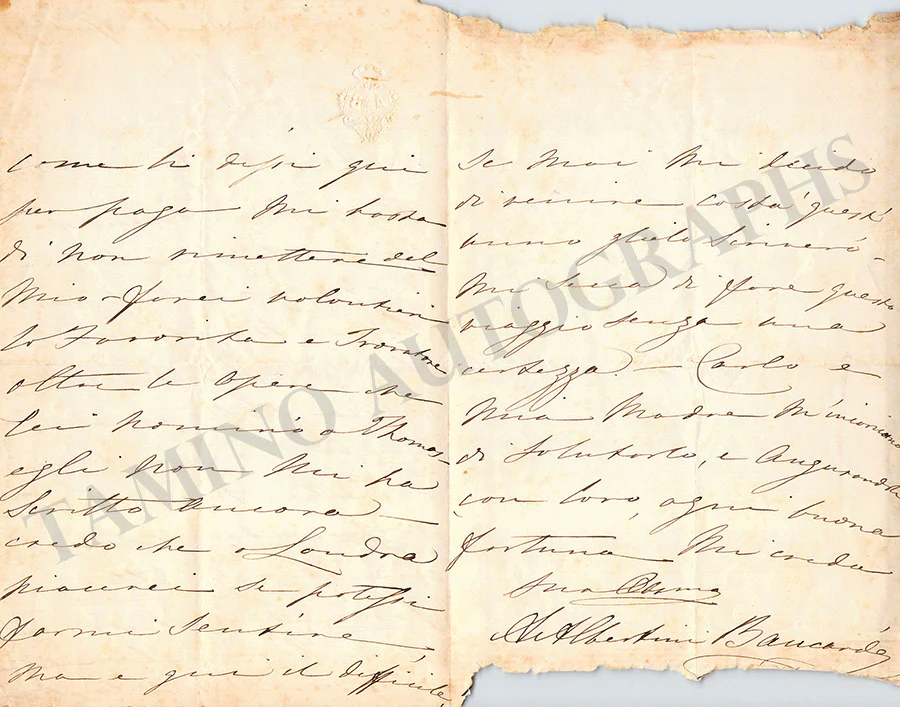 come li dissi qui
per paga mi basta
di non rimettere del
mio - farei volontieri
la Favorita e Trovatore
oltre le opere che
lei nominò a Thomas -
egli non mi ha
scritto ancora -
credo che a Londra
piacerei se potessi
farmi sentire
ma e qui il difficile,
Se mai mi decido
di venire costà quest'
anno glielo scriverò -
mi secca di fare questo
viaggio senza una
certezza. - Carlo e
mia Madre m'incaricano
di salutarlo, e Augurandole
con loro, ogni buona
fortuna mi creda
sua
Albertini Baucardé
TAMINO AUTOGRAPHS